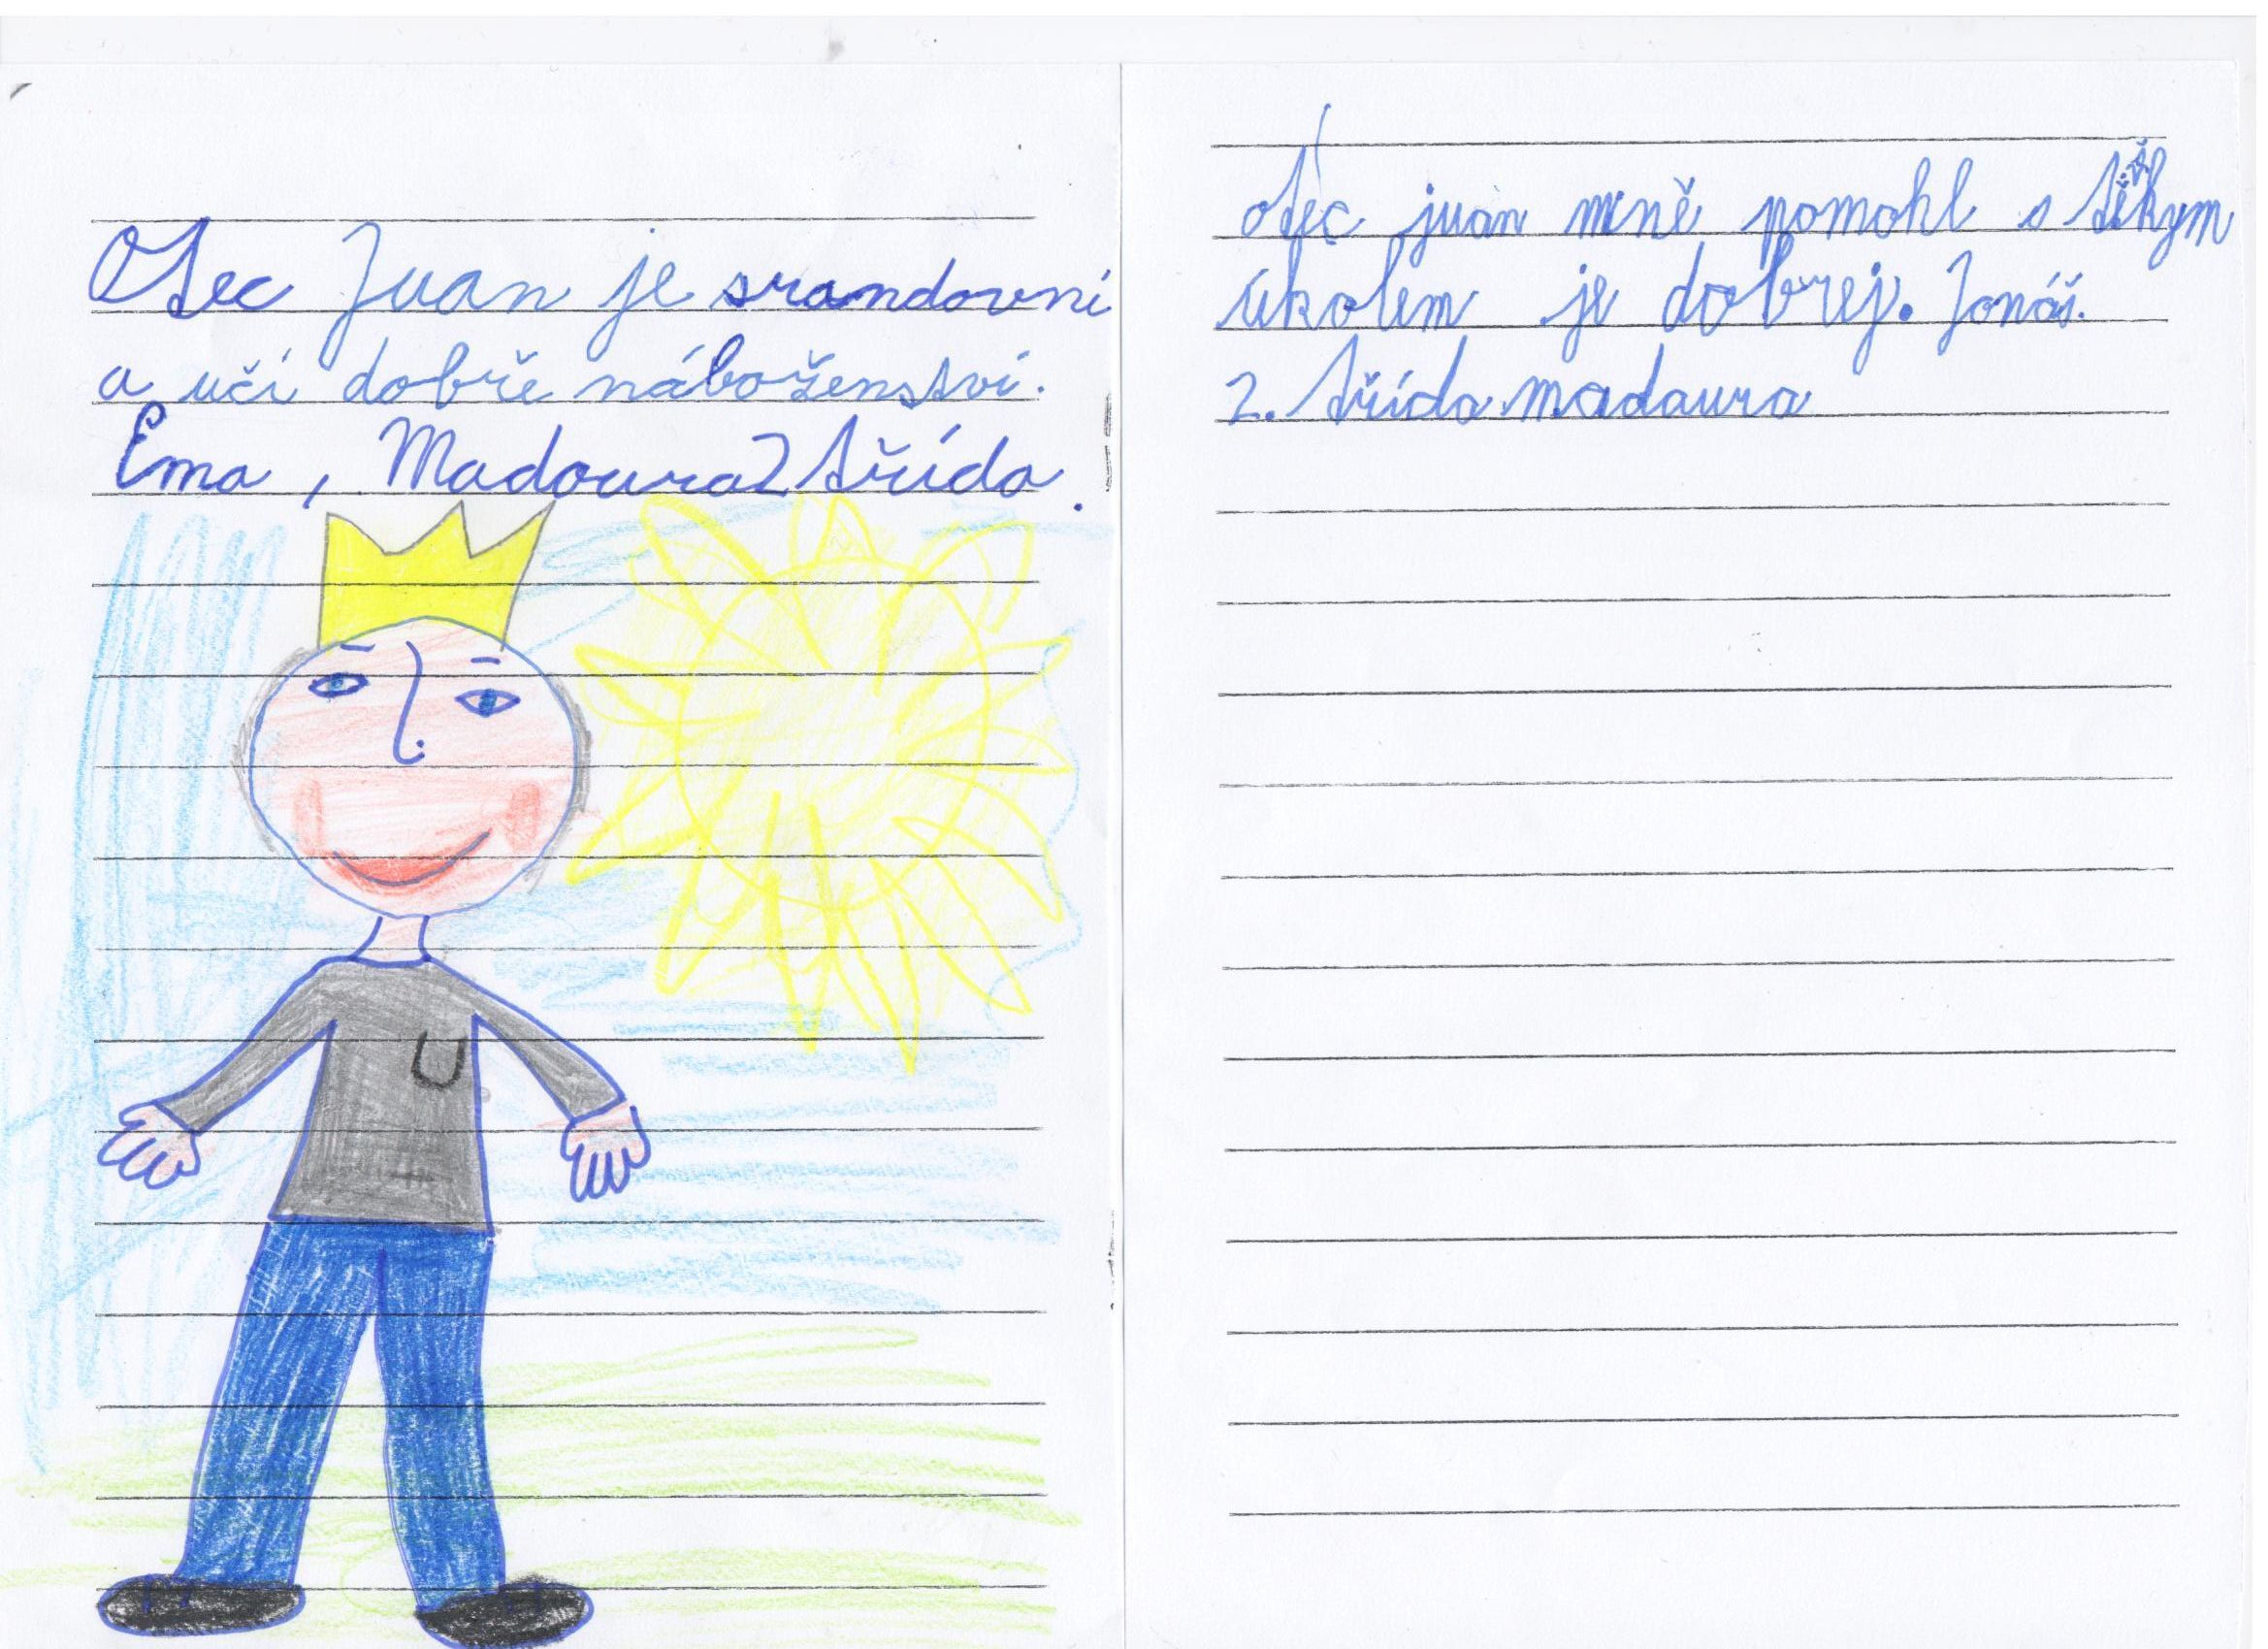 Otec Juan je srandovní
a učí dobře náboženství.
Ema, Madoura 2 třída.
otec juan mně pomohl s
úkolem je dobrej. Jonáš.
2. třída madaura